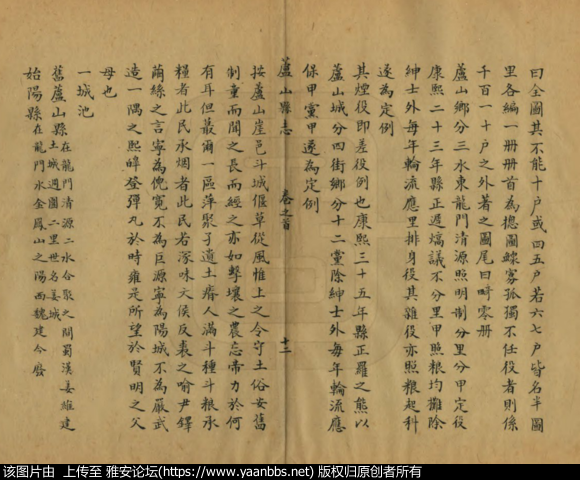 曰全圖其不能十户或四五户若六七户皆名半圖
里各编一册册首為摠圖鰥寡孤獨不任役者則係
千百一十户之外著之圖尾曰畸零册
蘆山鄉分三水東龍門清源照明制分里分甲定役
康熙二十三年縣正遲熇議不分里甲照粮均攤除
紳士外每年輪流應里排身役其雜役亦照粮起科
遂為定例
其煙役即差役例也康熙三十五年縣正羅之熊以
蘆山城分四街鄉分十二黨除紳士外每年輪流應
保甲黨甲遂為定例
蘆山縣志 卷之首 十二
按蘆山崖邑斗城偃草從風惟上之令守土俗安舊
制重而閭之長而經之亦如擊壤之農忘帝力於何
有耳但蕞爾一區萍聚孑遺土瘠人滿斗種斗粮承
糧者此民承烟者此民若濛味文侯反裘之喻尹鐸
繭絲之言寧為俛寬不為巨源寧為陽城不為嚴武
造一隅之熙皞登彈丸於時雍是所望於賢明之父
母也
一城池
舊蘆山縣 在龍門清源二水合聚之間蜀漢姜維建 土城週圍二里世名姜城
始陽縣 在龍門水金鳳山之陽西魏建今廢
该图片由 上传至 雅安论坛(https://www.yaanbbs.net) 版权归原创者所有